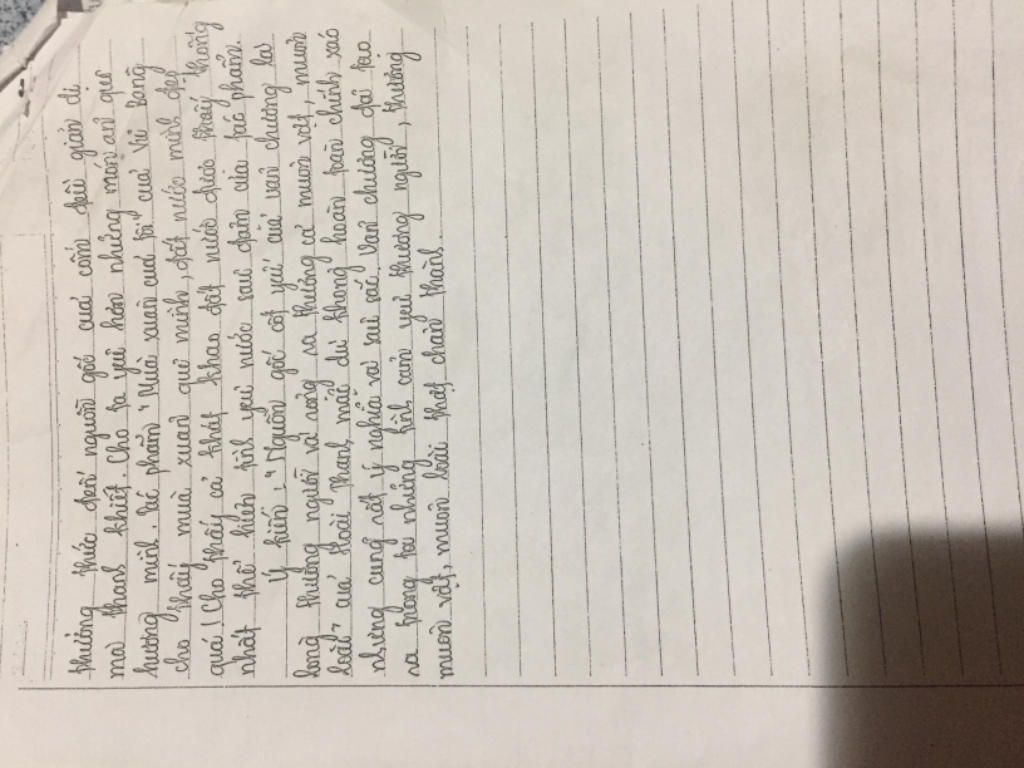 thưởng thức đến nguồn gốc của cốm đầu giản dị
mà thanh khiết. Cho ta yêu hơn những món ăn quê
hương mình. Tác phẩm "Mùa xuân của tôi" của Vũ Bằng
cho thấy mùa xuân quê mình, đất nước mình đẹp
quá! Cho thấy cả khát khao đất nước được thấy thống
nhất thể hiện tình yêu nước sâu đậm của tác phẩm.
Ý kiến: "Nguồn gốc cốt yếu của văn chương là
lòng thương người và rộng ra thương cả muôn vật, muôn
loài" của Hoài Thanh, mặc dù không hoàn toàn chính xác
nhưng cũng rất ý nghĩa và sâu sắc. Văn chương đã tạo
ra trong ta những tình cảm yêu thương người, thương
muôn vật, muôn loài thật chân thành.